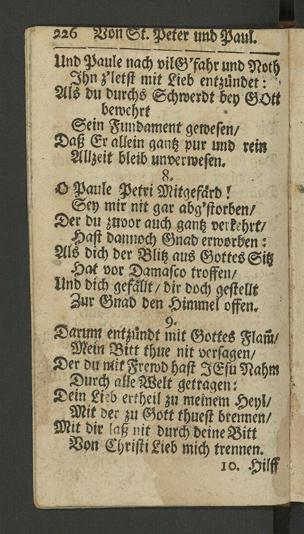 226 Von St. Peter und Paul.
Und Paule nach vil G'fahr und Noth
Ihn z'letst mit Lieb entzünder:
Als du durchs Schwerdt bey GOtt
bewehrt
Sein Fundament gewesen/
Daß Er allein gantz pur und rein
Allzeit bleib unverwesen.
8.
O Paule Petri Mitgefärd!
Sey mir nit gar abg'storben/
Der du zuvor auch gantz verkehrt/
Hast dannoch Gnad erworben:
Als dich der Blitz aus Gottes Sitz
Hat vor Damasco troffen/
Und dich gefällt/ dir doch gestellt
Zur Gnad den Himmel offen.
9.
Darum entzündt mit Gottes Flam̄/
Mein Bitt thue nit versagen/
Der du mit Frewd hast JEsu Nahm
Durch alle Welt getragen:
Dein Lieb ertheil zu meinem Heyl/
Mit der zu Gott thuest brennen/
Mit dir laß nit durch deine Bitt
Von Christi Lieb mich trennen.
10. Hilff